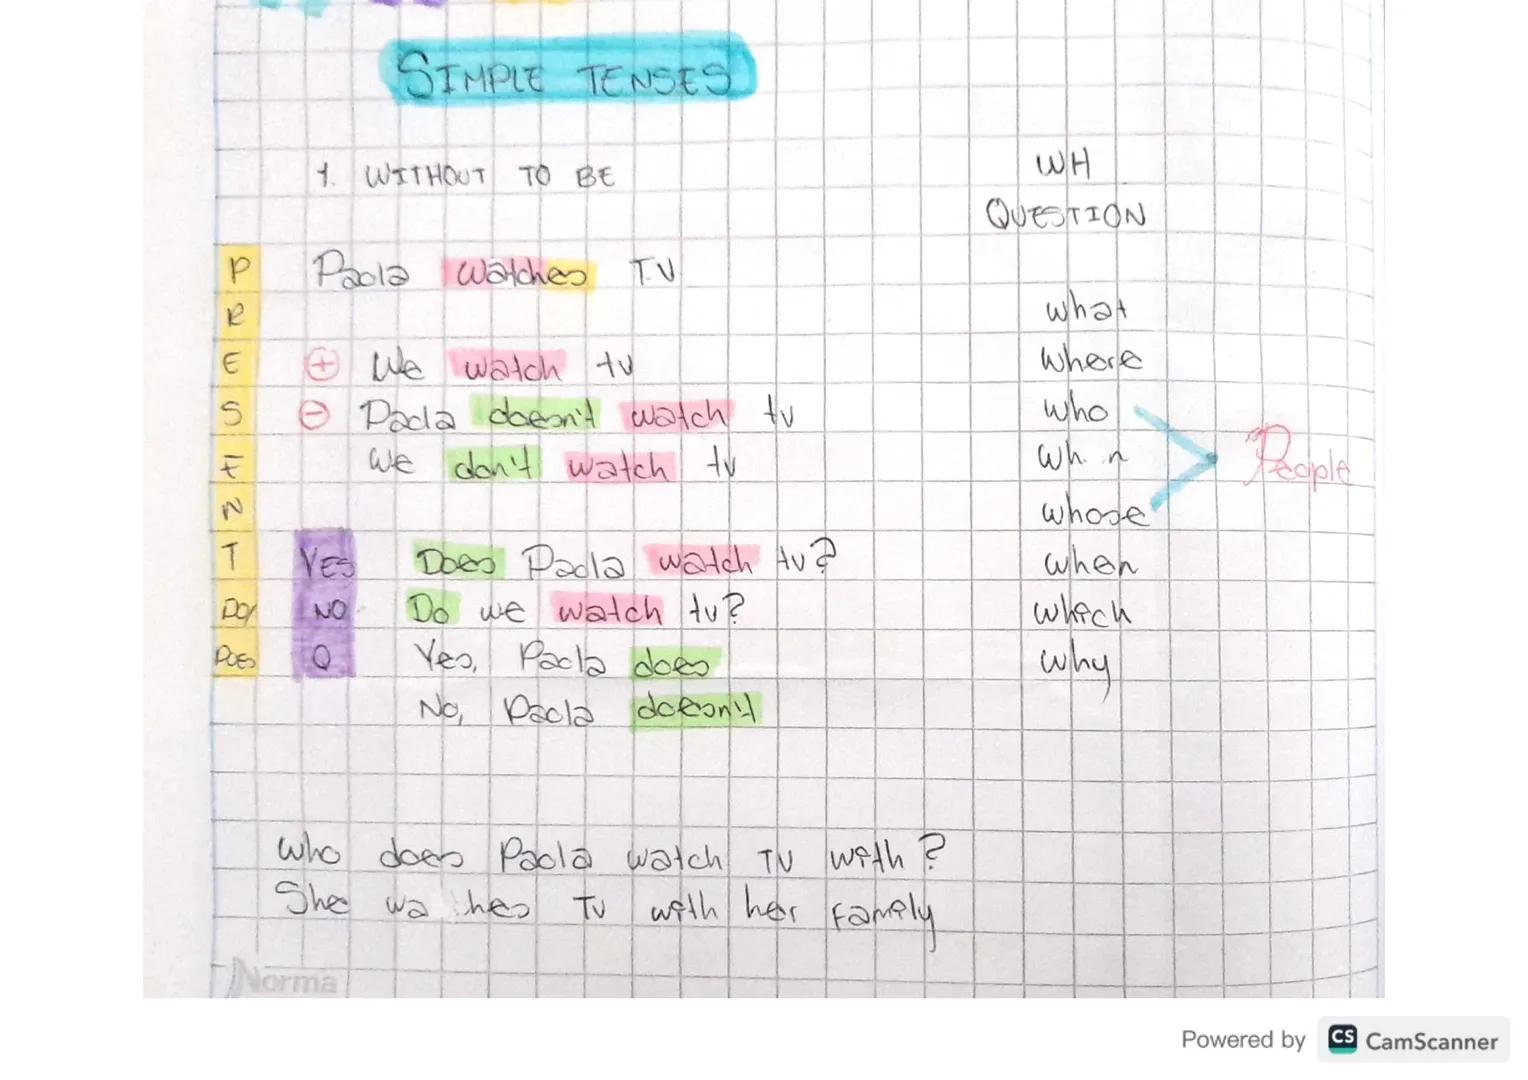 SIMPLE TENSES
1. WITHOUT TO BE
PRESENT
DO/
DOES
Paola watches T.V
⊕ We watch tv
⊖ Paola doesn't watch tv
We don't watch tv
YES
NO
Q
Does Paola watch tv?
Do we watch tv?
Yes, Paola does
No, Paola doesn't
WH
QUESTION
what
where
who
whose
when
which
why
People
Who does Paola watch TV with?
She wa hes TV with her family
Norma
Powered by CS CamScanner